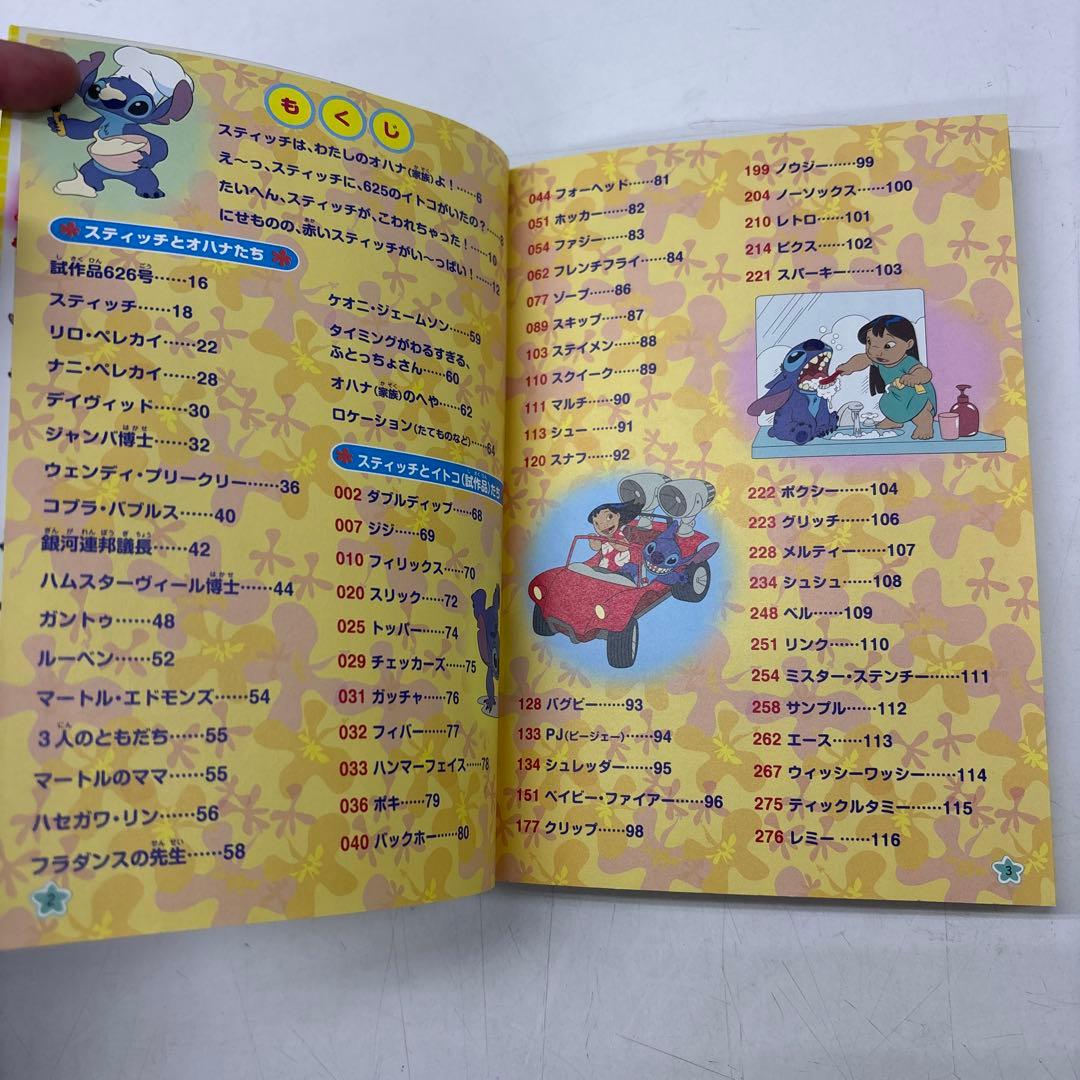 もくじ
スティッチは、わたしのオハナ(家族)よ!……6
え〜っ、スティッチに、625のイトコがいたの?……8
たいへん、スティッチが、こわれちゃった!……10
にせものの、赤いスティッチがい〜っぱい!……12
スティッチとオハナたち
試作品626号……16
スティッチ……18
リロ・ペレカイ……22
ナニ・ペレカイ……28
デイヴィッド……30
ジャンバ博士……32
ウェンディ・プリークリー……36
コブラ・バブルス……40
銀河連邦議長……42
ハムスターヴィール博士……44
ガントゥ……48
ルーベン……52
マートル・エドモンズ……54
3人のともだち……55
マートルのママ……55
ハセガワ・リン……56
フラダンスの先生……58
ケオニ・ジェームソン……59
タイミングがわるすぎる、
ふとっちょさん……60
オハナ(家族)のへや……62
ロケーション(たてものなど)……64
スティッチとイトコ(試作品)たち
002 ダブルディップ……68
007 ジジ……69
010 フィリックス……70
020 スリック……72
025 トッパー……74
029 チェッカーズ……75
031 ガッチャ……76
032 フィバー……77
033 ハンマーフェイス……78
036 ポキ……79
040 バックホー……80
2
044 フォーヘッド……81
051 ホッカー……82
054 ファジー……83
062 フレンチフライ……84
077 ソープ……86
089 スキップ……87
103 ステイメン……88
110 スクイーク……89
111 マルチ……90
113 シュー……91
120 スナフ……92
128 バグビー……93
133 PJ(ピージェー)……94
134 シュレッダー……95
151 ベイビー・ファイアー……96
177 クリップ……98
199 ノウジー……99
204 ノーソックス……100
210 レトロ……101
214 ピクス……102
221 スパーキー……103
222 ポクシー……104
223 グリッチ……106
228 メルティー……107
234 シュシュ……108
248 ベル……109
251 リンク……110
254 ミスター・ステンチー……111
258 サンプル……112
262 エース……113
267 ウィッシーワッシー……114
275 ティックルタミー……115
276 レミー……116
3